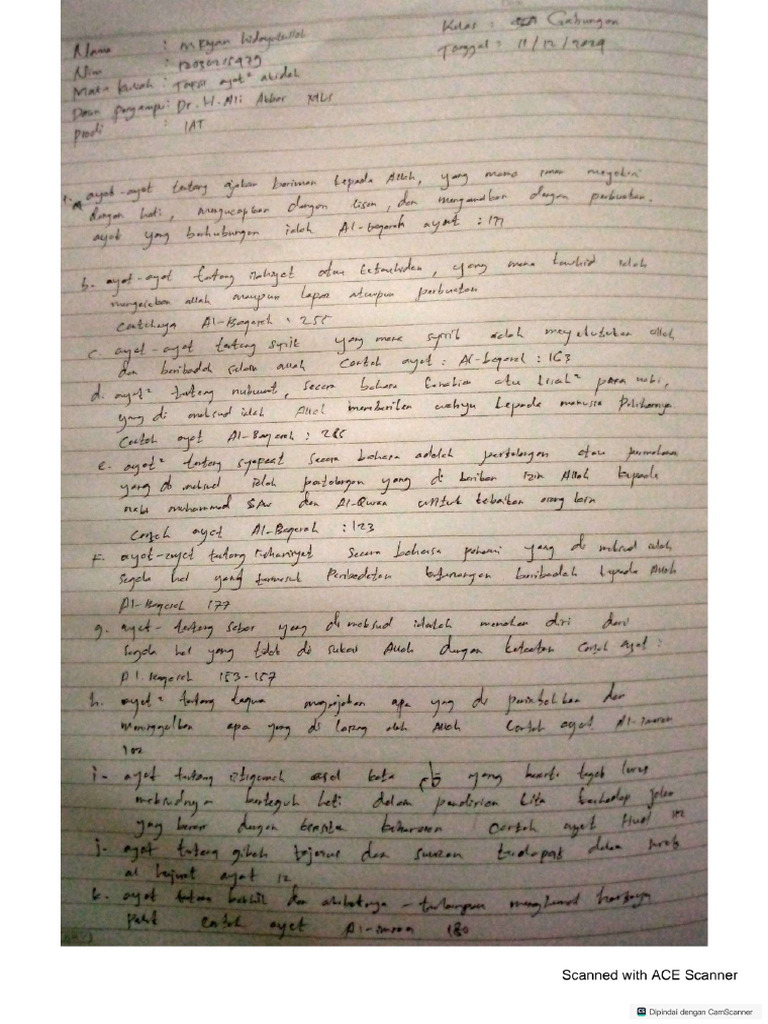 Kelas : Gabungan
Nama : M Ryan Hidayatullah
Tanggal : 11/12/2024
Nim : 12030215479
Mata kuliah : Tapsir ayat² akidah
Dosen pengampu : Dr. H. Ali Akbar MIS
prodi : IAT
1. a ayat-ayat tentang ajakan beriman kepada Allah, yang mana iman meyakini
dengan hati, mengucapkan dengan lisan, dan mengamalkan dengan perbuatan.
ayat yang berhubungan ialah Al-baqarah ayat : 177
b. ayat-ayat tentang atau ketauhidan, yang mana tawhid ialah
mengesakan allah maupun atuupun perbuatan
Contohnya Al-Baqarah : 255
c. ayat-ayat tentang syirik yang mana syirik adalah menyekutukan Allah
dan beribadah selain allah Contoh ayat : Al-baqarah : 163
d. ayat² tentang nubuwat, secara bahasa kenabian atau kisah² para nabi,
yang di maksud ialah Allah memberikan wahyu kepada manusia Pilihannya.
Contoh ayat Al-Baqarah : 285
e. ayat² tentang syapaat secara bahasa adalah pertolongan atau permohonan
yang di maksud ialah pertolongan yang di berikan izin Allah kepada
nabi muhammad SAW dan Al-Quran untuk kebaikan orang lain
Contoh ayat Al-Baqarah : 123
F. ayat-ayat tentang secara bahasa yang di maksud ialah
segala hal yang termasuk beribadah kepada Allah
Al-Baqarah 177
g. ayat- tentang sabar yang di maksud ialah menahan diri dari
segala hal yang tidak di sukai Allah dengan ketaatan Contoh ayat :
Al-Baqarah 153-157
h. ayat² tentang taqwa mengerjakan apa yang di perintahkan dan
meninggalkan apa yang di larang oleh Allah Contoh ayat Al-imran
102
i- ayat tentang istiqomah asal kata yang berarti tegak lurus
maksudnya berteguh hati dalam pendirian kita terhadap jalan
yang benar dengan kebenaran Contoh ayat Hud 112
j- ayat tentang gibah tajasus dan suuzan terdapat dalam surah
al hujurat ayat 12
k. ayat tentang bakhil dan akibatnya - terlampau menghemat hartanya
Pelit contoh ayat Al-imran 180
Scanned with ACE Scanner
CS Dipindai dengan CamScanner